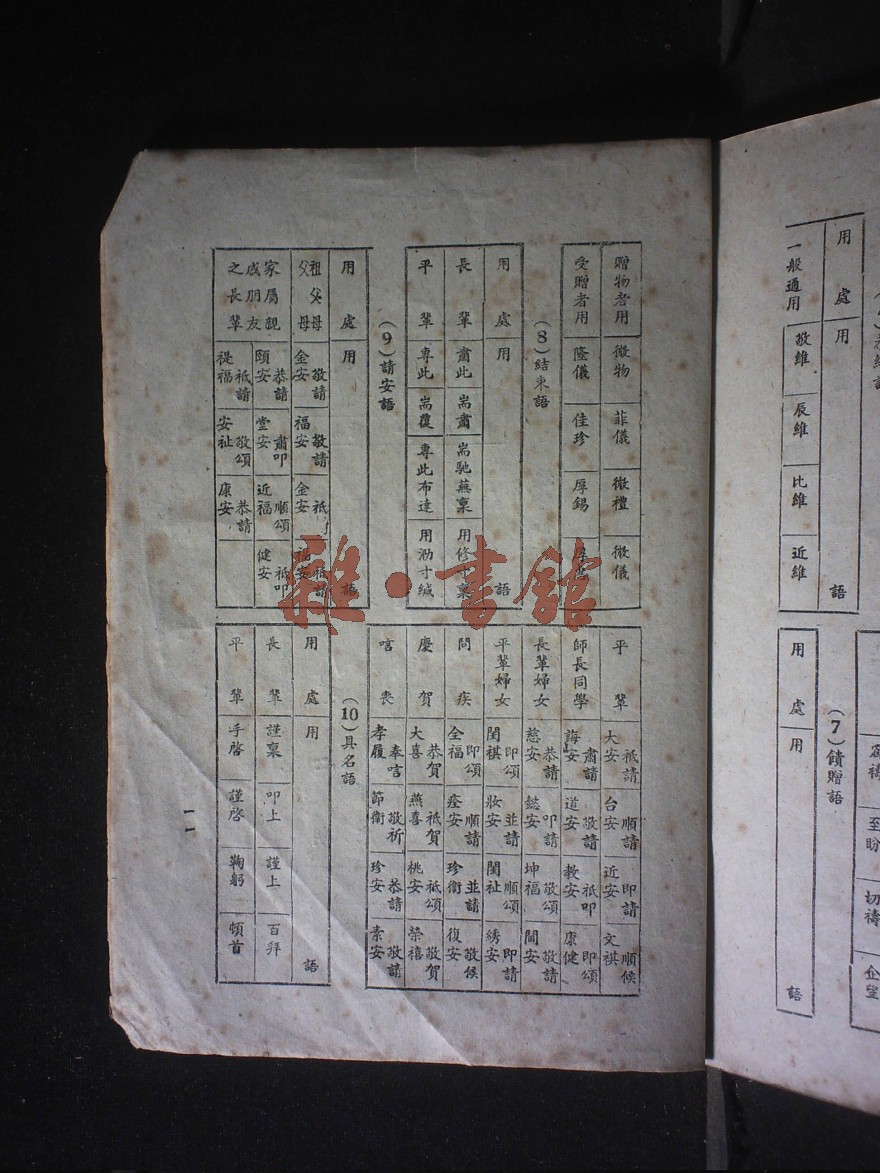 用處 用 語
一般通用 敬維 辰維 比維 近維
(7)饋贈語
用處 用 語
至盼 切禱 企望
贈物者用 微物 菲儀 微禮 微儀
受贈者用 隆儀 佳珍 厚錫
(8)結束語
用處 用 語
長輩 肅此 耑肅 耑馳蕪稟 用修寸稟
平輩 專此 耑覆 專此布達 用泐寸緘
(9)請安語
用處 用 語
祖父母 父母 敬請金安 敬請福安 金安 福安
家屬親戚朋友之長輩 恭請頤安 肅叩堂安 順頌近福 祇叩健安
祇請禔福 敬頌安祉 恭請康安
平輩 祇請大安 順請台安 即請近安 順候文祺
師長同學 肅請誨安 敬請道安 祇叩教安 即頌康健
長輩婦女 恭請慈安 叩請懿安 敬頌坤福 敬請閫安
平輩婦女 即頌閨祺 並請妝安 順頌閫祉 即請綉安
問疾 即頌全福 順請痊安 並請珍衛 敬候復安
慶賀 恭賀大喜 祇賀燕喜 祇頌桃安 敬賀榮禧
唁喪 奉唁孝履 敬祈節衛 恭請珍安 敬請素安
(10)具名語
用處 用 語
長輩 謹稟 叩上 謹上 百拜
平輩 手啓 謹啓 鞠躬 頓首
一一
雜·書館